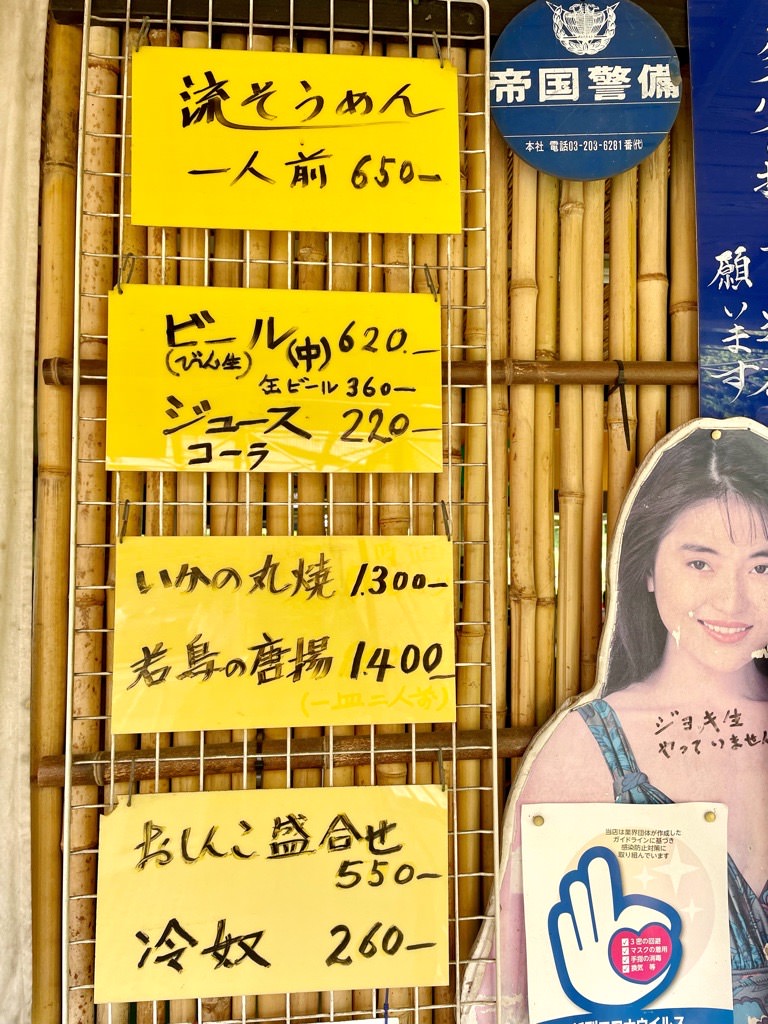 流そうめん
一人前 650ー
ビール(中)620.ー
(びん生)
缶ビール 360ー
ジュース 220ー
コーラ
いかの丸焼 1.300ー
若鳥の唐揚 1.400ー
(一皿二人前)
おしんこ盛合せ
550ー
冷奴 260ー
帝国警備
本社 電話03-203-6281番(代)
願います
ジョキ生
やっていません
当店は業界団体が作成した
ガイドラインに基づき
感染防止対策に
取り組んでいます
3密の回避
マスクの着用
手指の消毒
換気 等